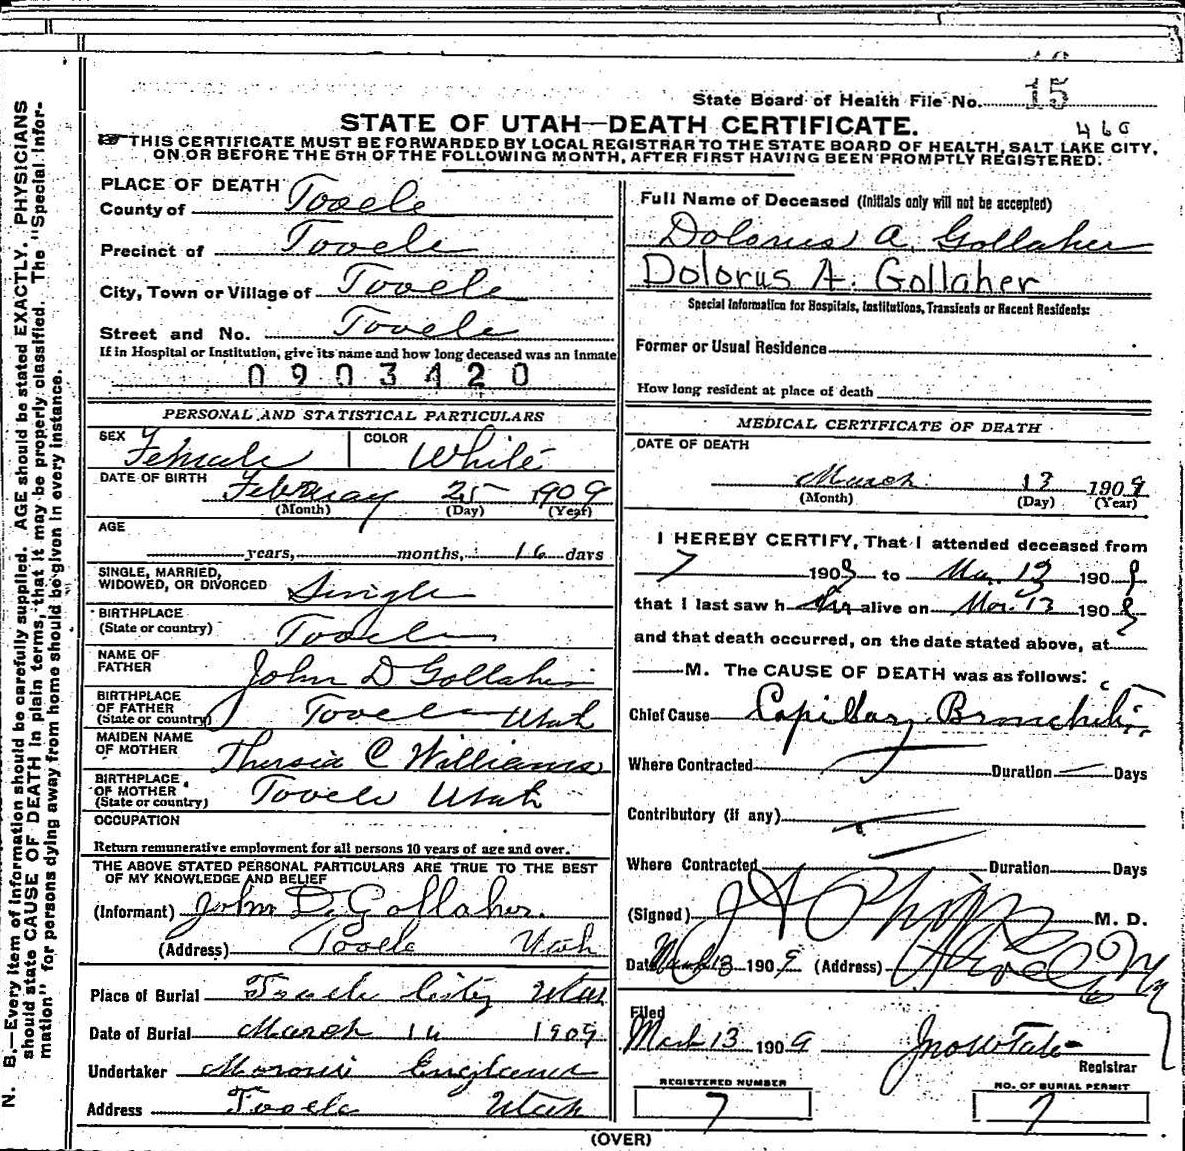 State Board of Health File No. 15
460
STATE OF UTAH—DEATH CERTIFICATE.
THIS CERTIFICATE MUST BE FORWARDED BY LOCAL REGISTRAR TO THE STATE BOARD OF HEALTH, SALT LAKE CITY,
ON OR BEFORE THE 5TH OF THE FOLLOWING MONTH, AFTER FIRST HAVING BEEN PROMPTLY REGISTERED.
N. B.—Every item of information should be carefully supplied. AGE should be stated EXACTLY. PHYSICIANS
should state CAUSE OF DEATH in plain terms, that it may be properly classified. The "Special Infor-
mation" for persons dying away from home should be given in every instance.
PLACE OF DEATH
County of Tooele
Precinct of Tooele
City, Town or Village of Tooele
Street and No. Tooele
If in Hospital or Institution, give its name and how long deceased was an inmate
0903420
PERSONAL AND STATISTICAL PARTICULARS
SEX Female COLOR White
DATE OF BIRTH February 25 1909
(Month) (Day) (Year)
AGE
years, months, 16 days
SINGLE, MARRIED,
WIDOWED, OR DIVORCED Single
BIRTHPLACE
(State or country) Tooele
NAME OF
FATHER John D Gollaher
BIRTHPLACE
OF FATHER
(State or country) Tooele Utah
MAIDEN NAME
OF MOTHER Thersia C Williams
BIRTHPLACE
OF MOTHER
(State or country) Tooele Utah
OCCUPATION
Return remunerative employment for all persons 10 years of age and over.
THE ABOVE STATED PERSONAL PARTICULARS ARE TRUE TO THE BEST
OF MY KNOWLEDGE AND BELIEF
(Informant) John D. Gollaher.
(Address) Tooele Utah
Place of Burial Tooele City Utah
Date of Burial March 14 1909
Undertaker Moroni England
Address Tooele Utah
Full Name of Deceased (Initials only will not be accepted)
Dolorus A. Gollaher
Dolorus A. Gollaher
Special Information for Hospitals, Institutions, Transients or Recent Residents:
Former or Usual Residence
How long resident at place of death
MEDICAL CERTIFICATE OF DEATH
DATE OF DEATH
March 13 1909
(Month) (Day) (Year)
I HEREBY CERTIFY, That I attended deceased from
190 to Mar. 13 1909
that I last saw her alive on Mar. 13 1909
and that death occurred, on the date stated above, at
M. The CAUSE OF DEATH was as follows:
Chief Cause Capillary Bronchitis
Where Contracted Duration Days
Contributory (if any)
Where Contracted Duration Days
(Signed) M. D.
Date March 13 1909 (Address)
Filed
March 13 1909 Jno W Tate
Registrar
REGISTERED NUMBER NO. OF BURIAL PERMIT
7 7
(OVER)